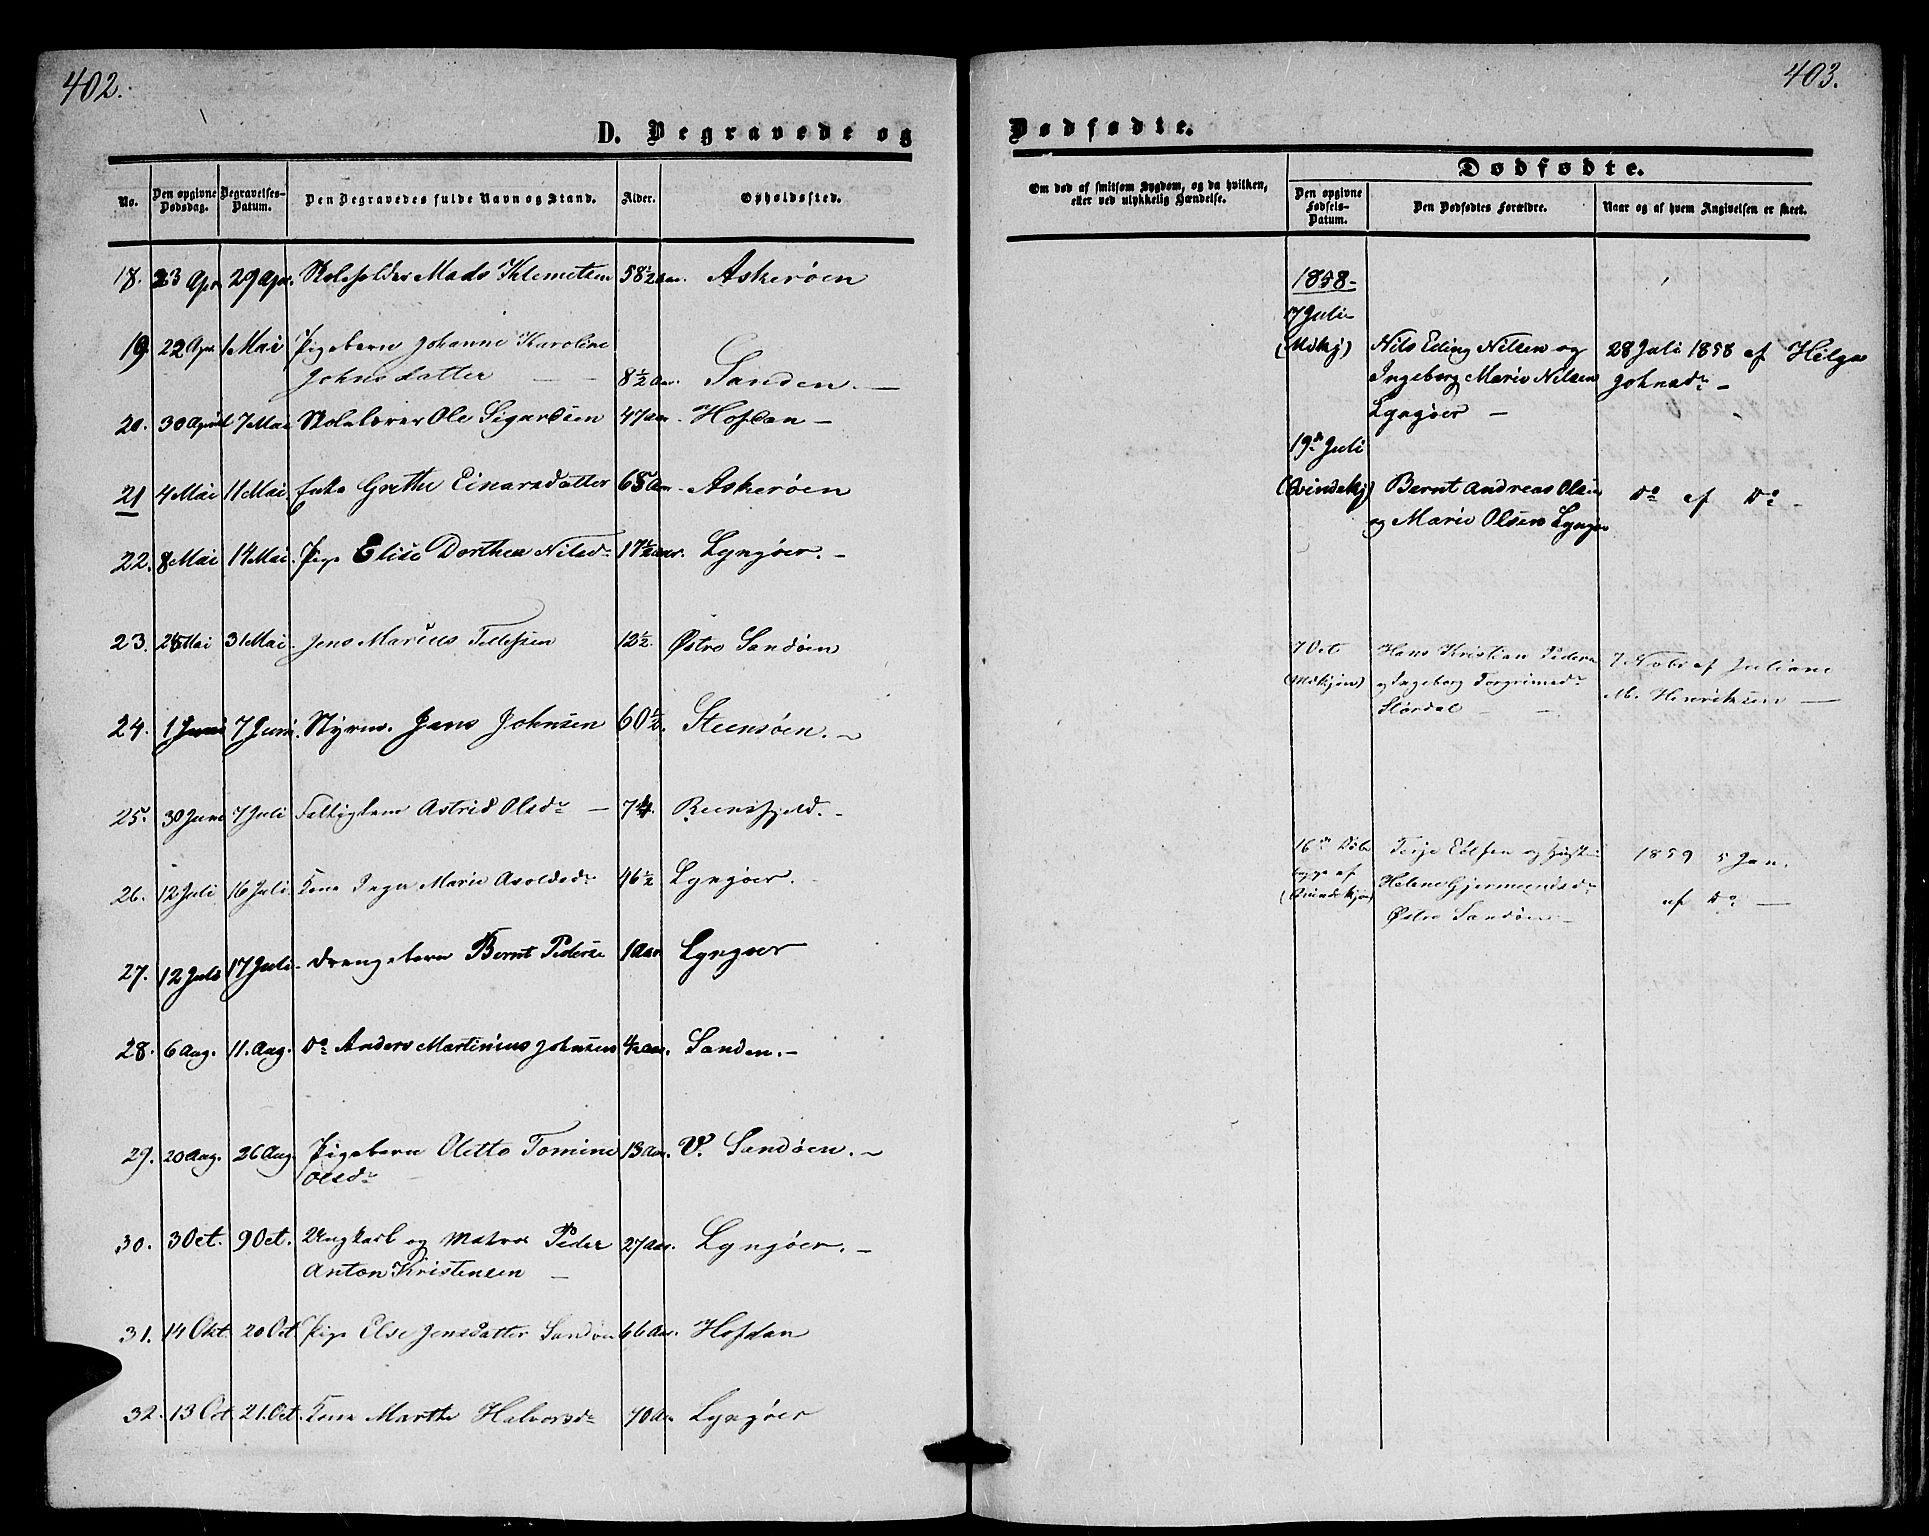 402.
D. Begravede og
No. Den opgivne Dødsdag. Begravelses-Datum. Den Begravedes fulde Navn og Stand. Alder. Opholdssted.
18. 23 Apr. 29 Apr. Mads Klemetsen 58½ Aar. Askerøen
19. 22 Apr. 1 Mai Pigebarn Johanne Karoline
Johnsdatter 8½ Aar. Sanden.
20. 30 April 7 Mai Skolelærer Ole Sigurdsen 47 Aar Hofdan
21 4 Mai 11 Mai Enke Grethe Einarsdatter 65 Aar Askerøen
22. 8 Mai 14 Mai. Pige Elise Dorthea Nilsdr 17½ Aar. Lyngøer.
23. Mai 31 Mai Jens Marius Tellefsen 12½ Østre Sandøen
24. 1 Juni 7 Juni Styrm. Jens Johnsen 60½. Steensøen.
25. 30 Juni 7 Juli Astrid Olsdr 74. Reinsfjeld.
26. 12 Juli 16 Juli Kone Inger Marie Asoldsdr 46½ Lyngøer.
27. 12 Juli 17 Juli Drengebarn Bernt Peders 1 Aar Lyngøer
28. 6 Aug. 11. Aug. Do Anders Martinius Johnsen ½ Aar. Sanden.
29. 20 Aug. 26 Aug Pigebarn Olette Tomine 13 Aar. V. Sandøen.
Olsdr
30. 3 Oct. 9 Oct. Ungkarl og Matros Peder 27 Aar. Lyngøer.
Anton Kristensen
31. 14 Okt. 20 Oct Pige Else Jensdatter Sandøen 66 Aar. Hofdan
32. 13 Oct 21. Oct. Kone Marthe Halvorsdr 70 Aar Lyngøer
403.
Dødfødte.
Om død af smitsom Sygdom, og da hvilken, eller ved ulykkelig Hændelse.
Dødfødte.
Den opgivne Fødsels-Datum. Den Dødfødtes Forældre. Naar og af hvem Angivelsen er skeet.
1858.
7 Juli
(Mdkj) Nils Eding Nilsen og 28 Juli 1858 af Helga
Ingeborg Marie Nilsen Johnsdr
Lyngøer
19de Juli
(Qvindekj) Bernt Andreas Olsen Do af Do
og Marie Olsen Lyngøer
7 Oct Hans Kristian Peders 7 Novbr af Juliane
(Mdkjøn) og Ingeborg Torgrimsdr M. Henriksen
Størdal
16de Terje og Hustru 1859 5 Jan.
af Helene Gjermundsdr af Do
(Qvindekjøn) Østre Sandøen